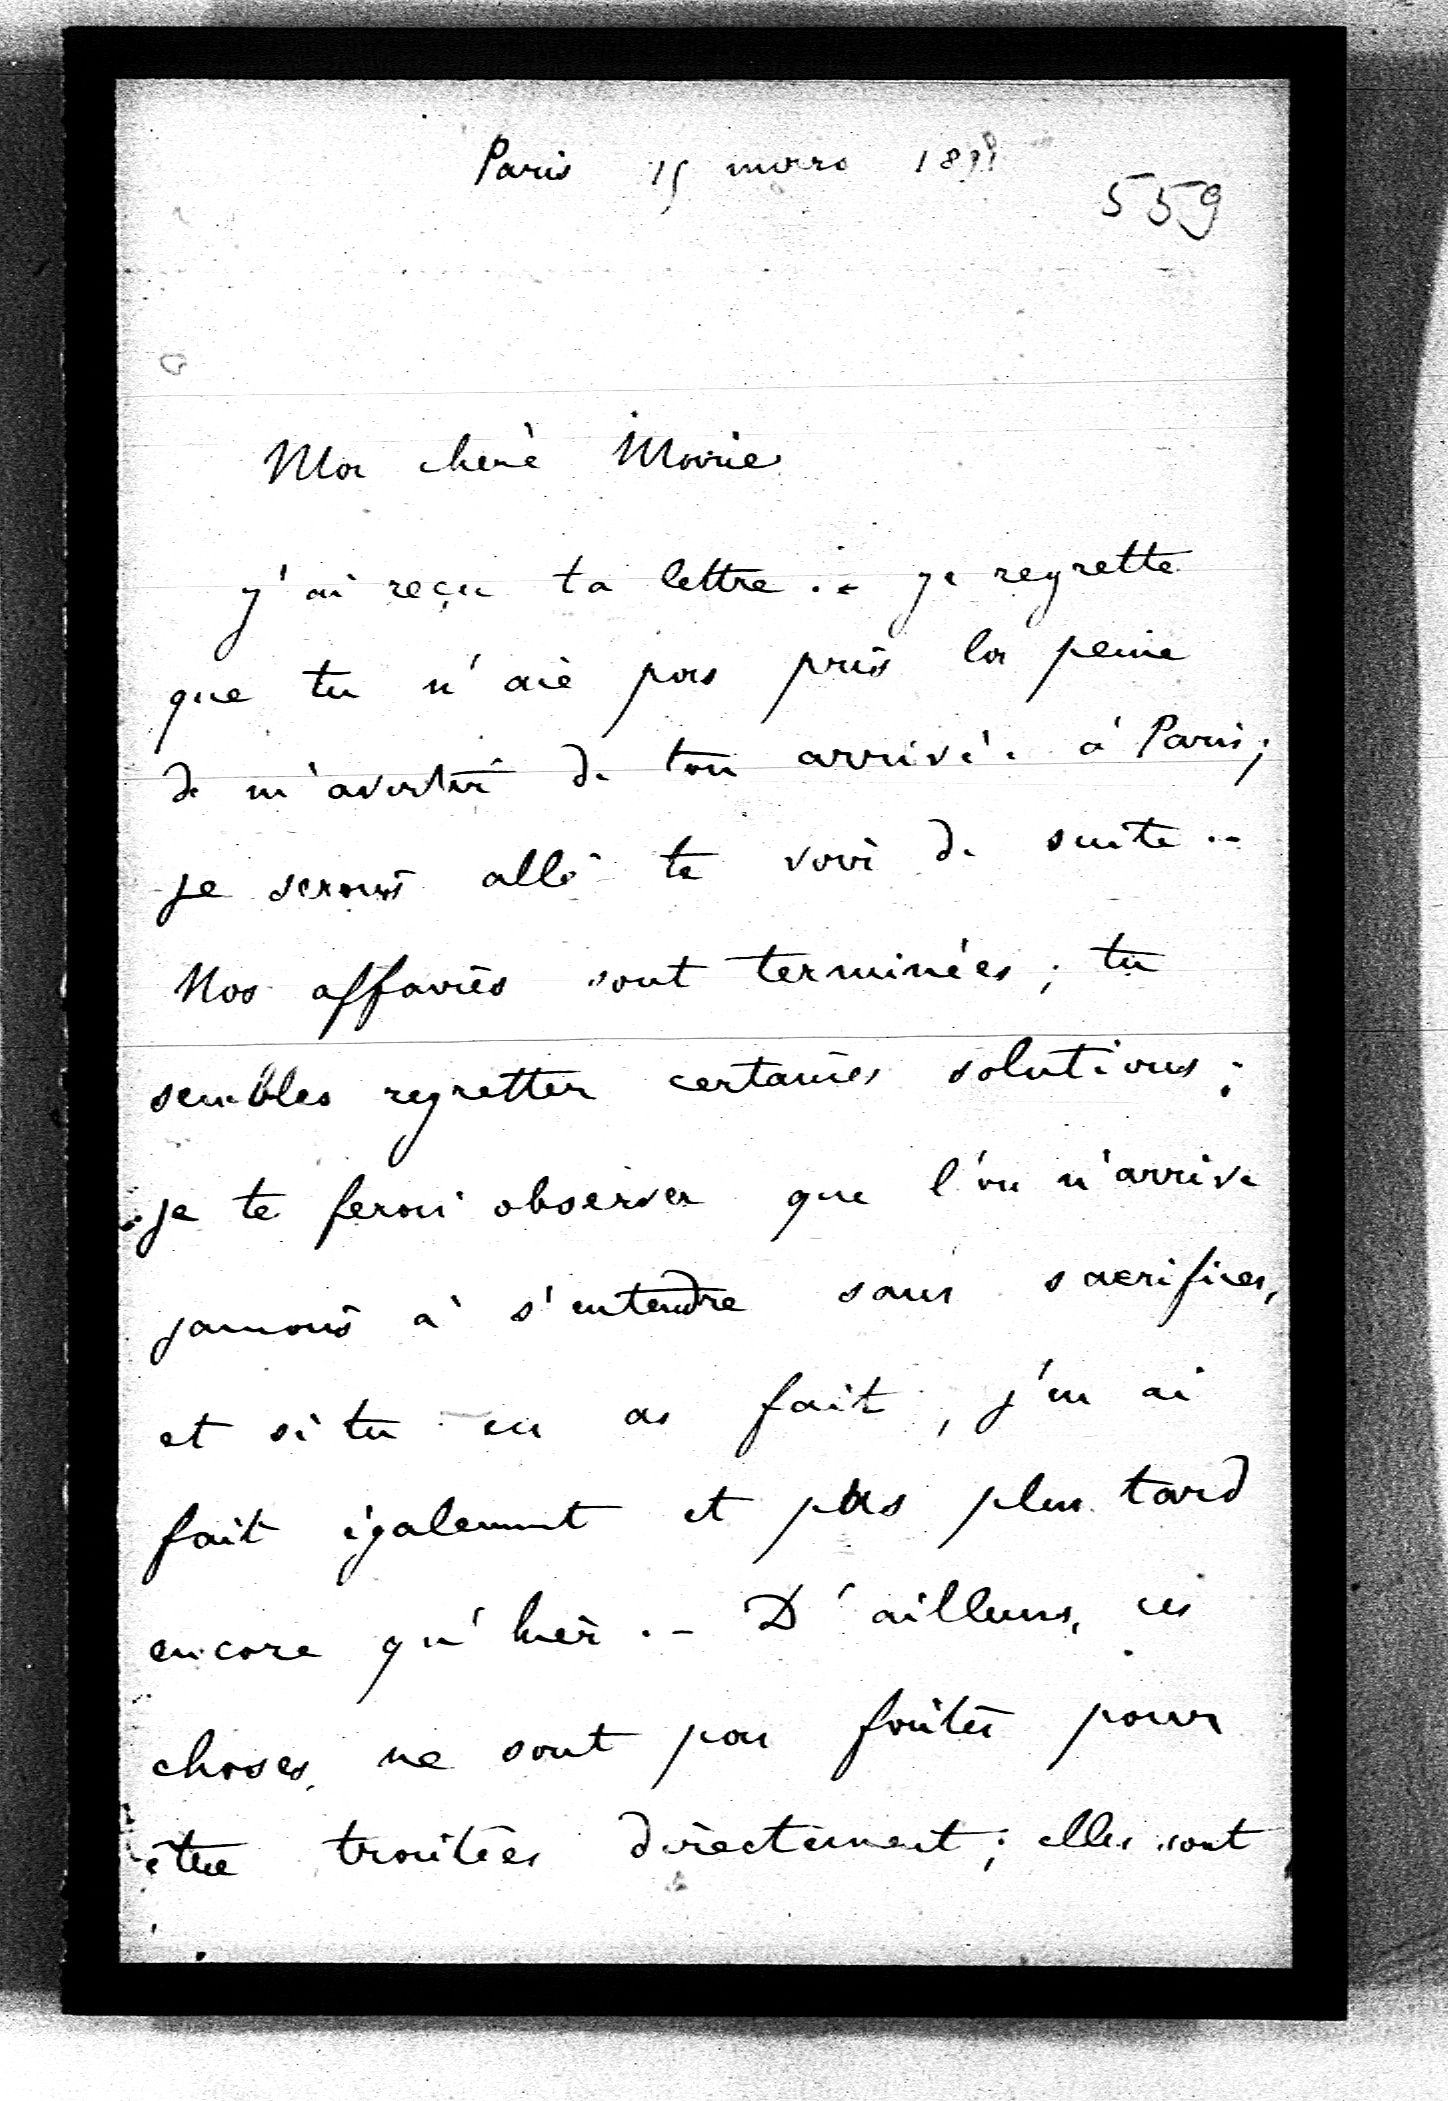 Paris 15 mars 189
559
Ma chere Marie
J'ai reçu ta lettre.- Je regrette
que tu n'aie pas pris la peine
de m'avertir de ton arrivée à Paris;
je serais allé te voir de suite.-
Nos affaires sont terminées; tu
sembles regretter certaines solutions;
je te ferai observer que l'on n'arrive
jamais à s'entendre sans sacrifices,
et si tu en as fait, j'en ai
fait également et pas plus tard
encore qu'hier.- D'ailleurs, ces
choses, ne sont pas faites pour
être traitées directement; elles sont